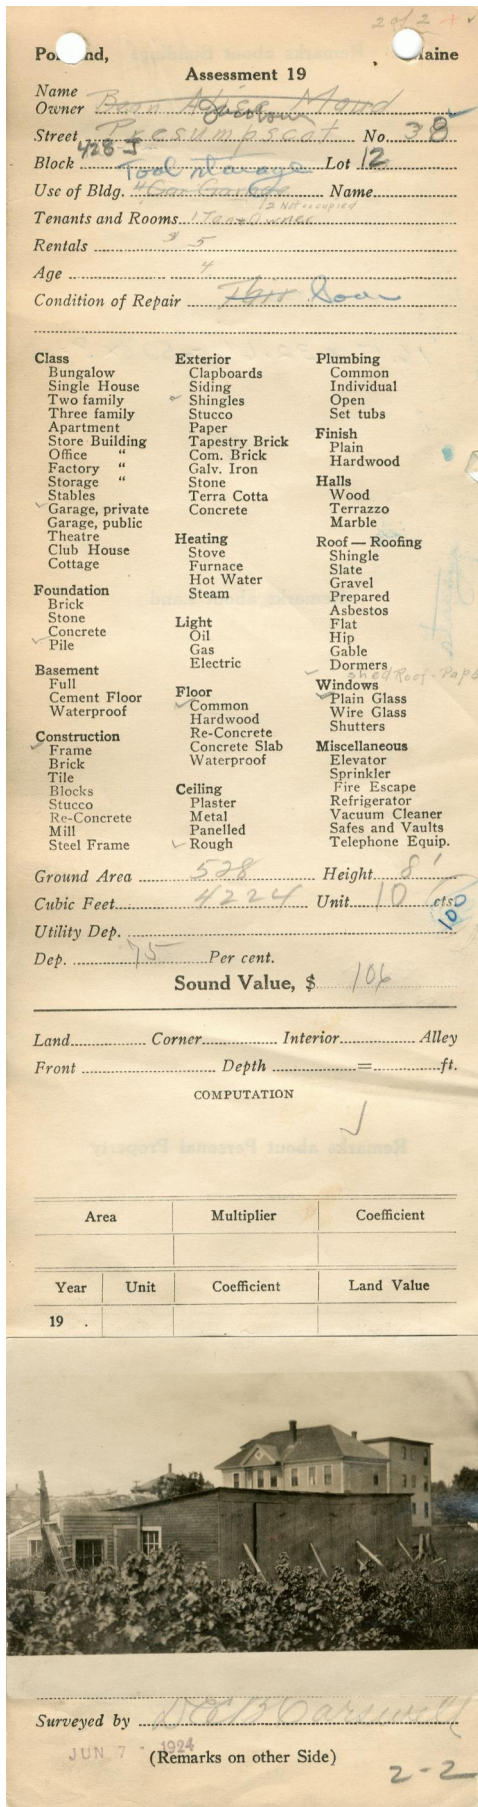 2 of 2 +
Portland, Maine
Assessment 19
Name
Owner Maud
Street Presumpscot No. 38
Block 428 J Lot 12
Tool storage
Use of Bldg. 4 Car Garage Name
2 Not occupied
Tenants and Rooms 1 Tens Owner
Rentals $ 5
Age 4
Condition of Repair Poor
Class
Bungalow
Single House
Two family
Three family
Apartment
Store Building
Office "
Factory "
Storage "
Stables
Garage, private
Garage, public
Theatre
Club House
Cottage
Foundation
Brick
Stone
Concrete
Pile
Basement
Full
Cement Floor
Waterproof
Construction
Frame
Brick
Tile
Blocks
Stucco
Re-Concrete
Mill
Steel Frame
Exterior
Clapboards
Siding
Shingles
Stucco
Paper
Tapestry Brick
Com. Brick
Galv. Iron
Stone
Terra Cotta
Concrete
Heating
Stove
Furnace
Hot Water
Steam
Light
Oil
Gas
Electric
Floor
Common
Hardwood
Re-Concrete
Concrete Slab
Waterproof
Ceiling
Plaster
Metal
Panelled
Rough
Plumbing
Common
Individual
Open
Set tubs
Finish
Plain
Hardwood
Halls
Wood
Terrazzo
Marble
Roof — Roofing
Shingle
Slate
Gravel
Prepared
Asbestos
Flat
Hip
Gable
Dormers
Shed Roof - Pape
Windows
Plain Glass
Wire Glass
Shutters
Miscellaneous
Elevator
Sprinkler
Fire Escape
Refrigerator
Vacuum Cleaner
Safes and Vaults
Telephone Equip.
Ground Area 528 Height 8'
Cubic Feet 4224 Unit 10 cts.
100
Utility Dep.
Dep. 75 Per cent.
Sound Value, $ 106
Land Corner Interior Alley
Front Depth = ft.
COMPUTATION
Area Multiplier Coefficient
Year Unit Coefficient Land Value
19 .
Surveyed by Carswell
JUN 7 - 1924
(Remarks on other Side)
2-2